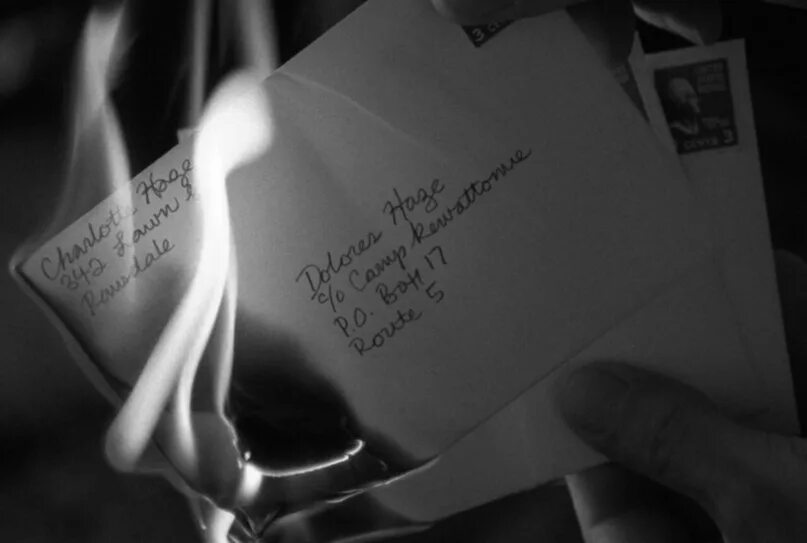 Charlotte Haze
342 Lawn S
Ramsdale
Dolores Haze
c/o Camp Kewattonnie
P.O. Box 17
Route 5
3 C
CENTS 3